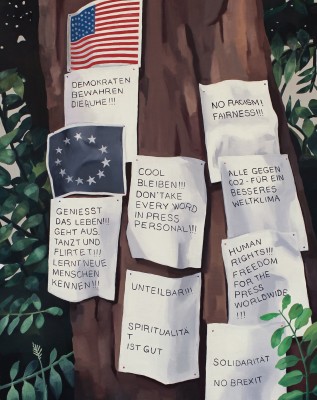 DEMOKRATEN
BEWAHREN
DIE RUHE!!!
NO RACISM!
FAIRNESS!!!
COOL
BLEIBEN!!!
DON'T TAKE
EVERY WORD
IN PRESS
PERSONAL!!!
ALLE GEGEN
CO2-FÜR EIN
BESSERES
WELTKLIMA
GENIESST
DAS LEBEN!!!
GEHT AUS
TANZT UND
FLIRTET!!!
LERNT NEUE
MENSCHEN
KENNEN!!!
HUMAN
RIGHTS!!!
FREEDOM
FOR THE
PRESS
WORLDWIDE
!!!
UNTEILBAR!!!
SPIRITUALITA
T
IST GUT
SOLIDARITAT
NO BREXIT